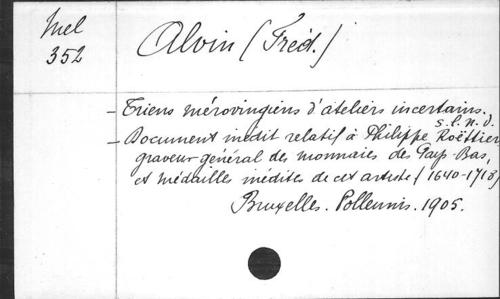 Mel
352
Alvin (Fréd.)
— Triens mérovingiens d'ateliers incertains.
s. l. n. d.
— Document inédit relatif à Philippe Roëttier,
graveur général des monnaies des Pays-Bas,
et médailles inédites de cet artiste (1640-1718)
Bruxelles. Polleunis. 1905.